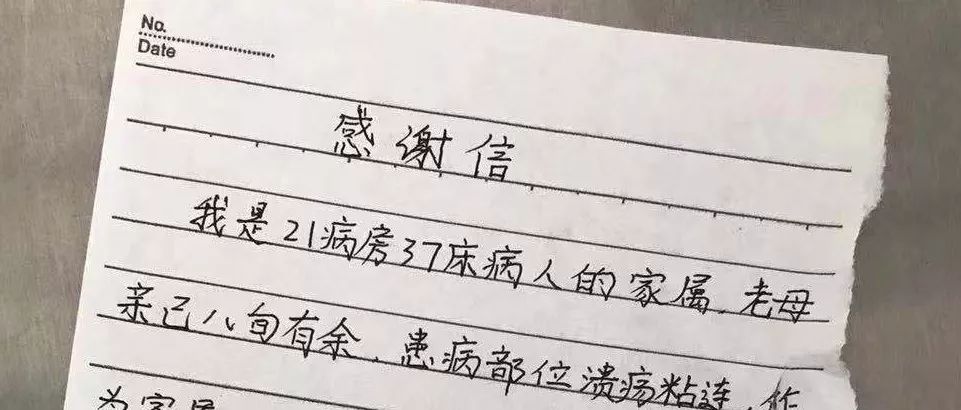 No.
Date
感谢信
我是21病房37床病人的家属,老母
亲已八旬有余,患病部位溃疡粘连,作
为家属